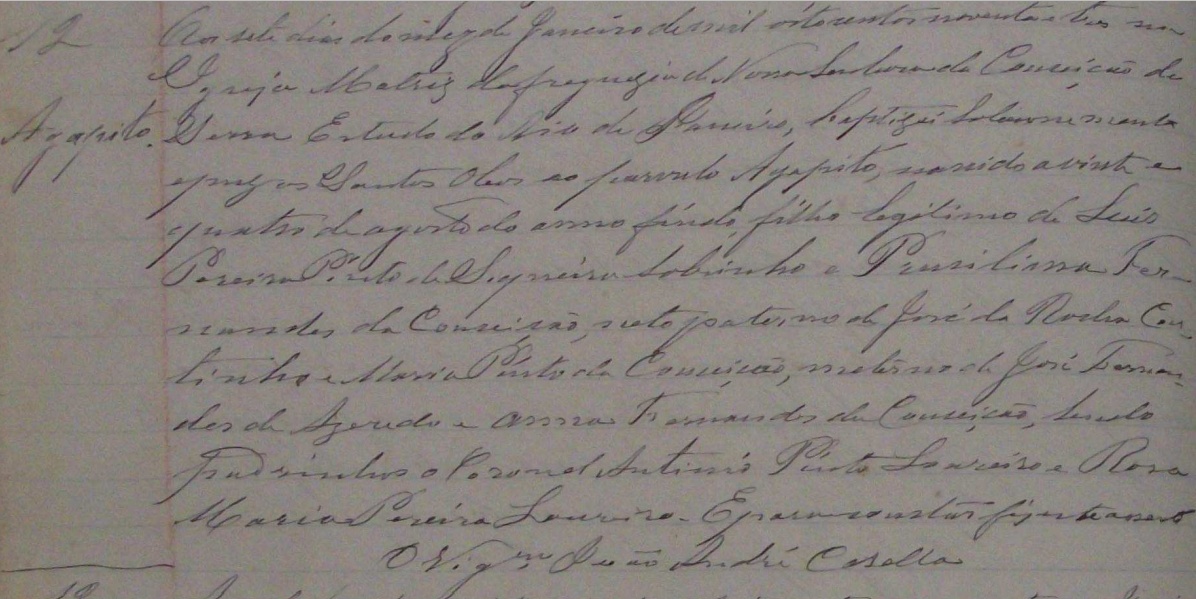 12
Aos sete dias do mez de Janeiro de mil oitocentos noventa e tres na
Igreja Matriz da freguezia de Nossa Senhora da Conceição de
Agapito.
Estado do Rio de Janeiro, baptizei solemnemente
e puz os Santos Oleos ao parvulo Agapito, nascido a vinte e
quatro de agosto do anno findo, filho legitimo de Luis
Pereira Pinto de Siqueira Sobrinho e Prusilina Fer-
nandes da Conceição, neto paterno de José da Rocha Cou-
tinho e Maria Pinto da Conceição, materno de José Fernan-
des de Azeredo e Anna Fernandes da Conceição, sendo
padrinhos o Coronel Antonio Pinto Loureiro e Rosa
Maria Pereira Loureiro. E para constar fiz este assento
O Vigrº João André Casella